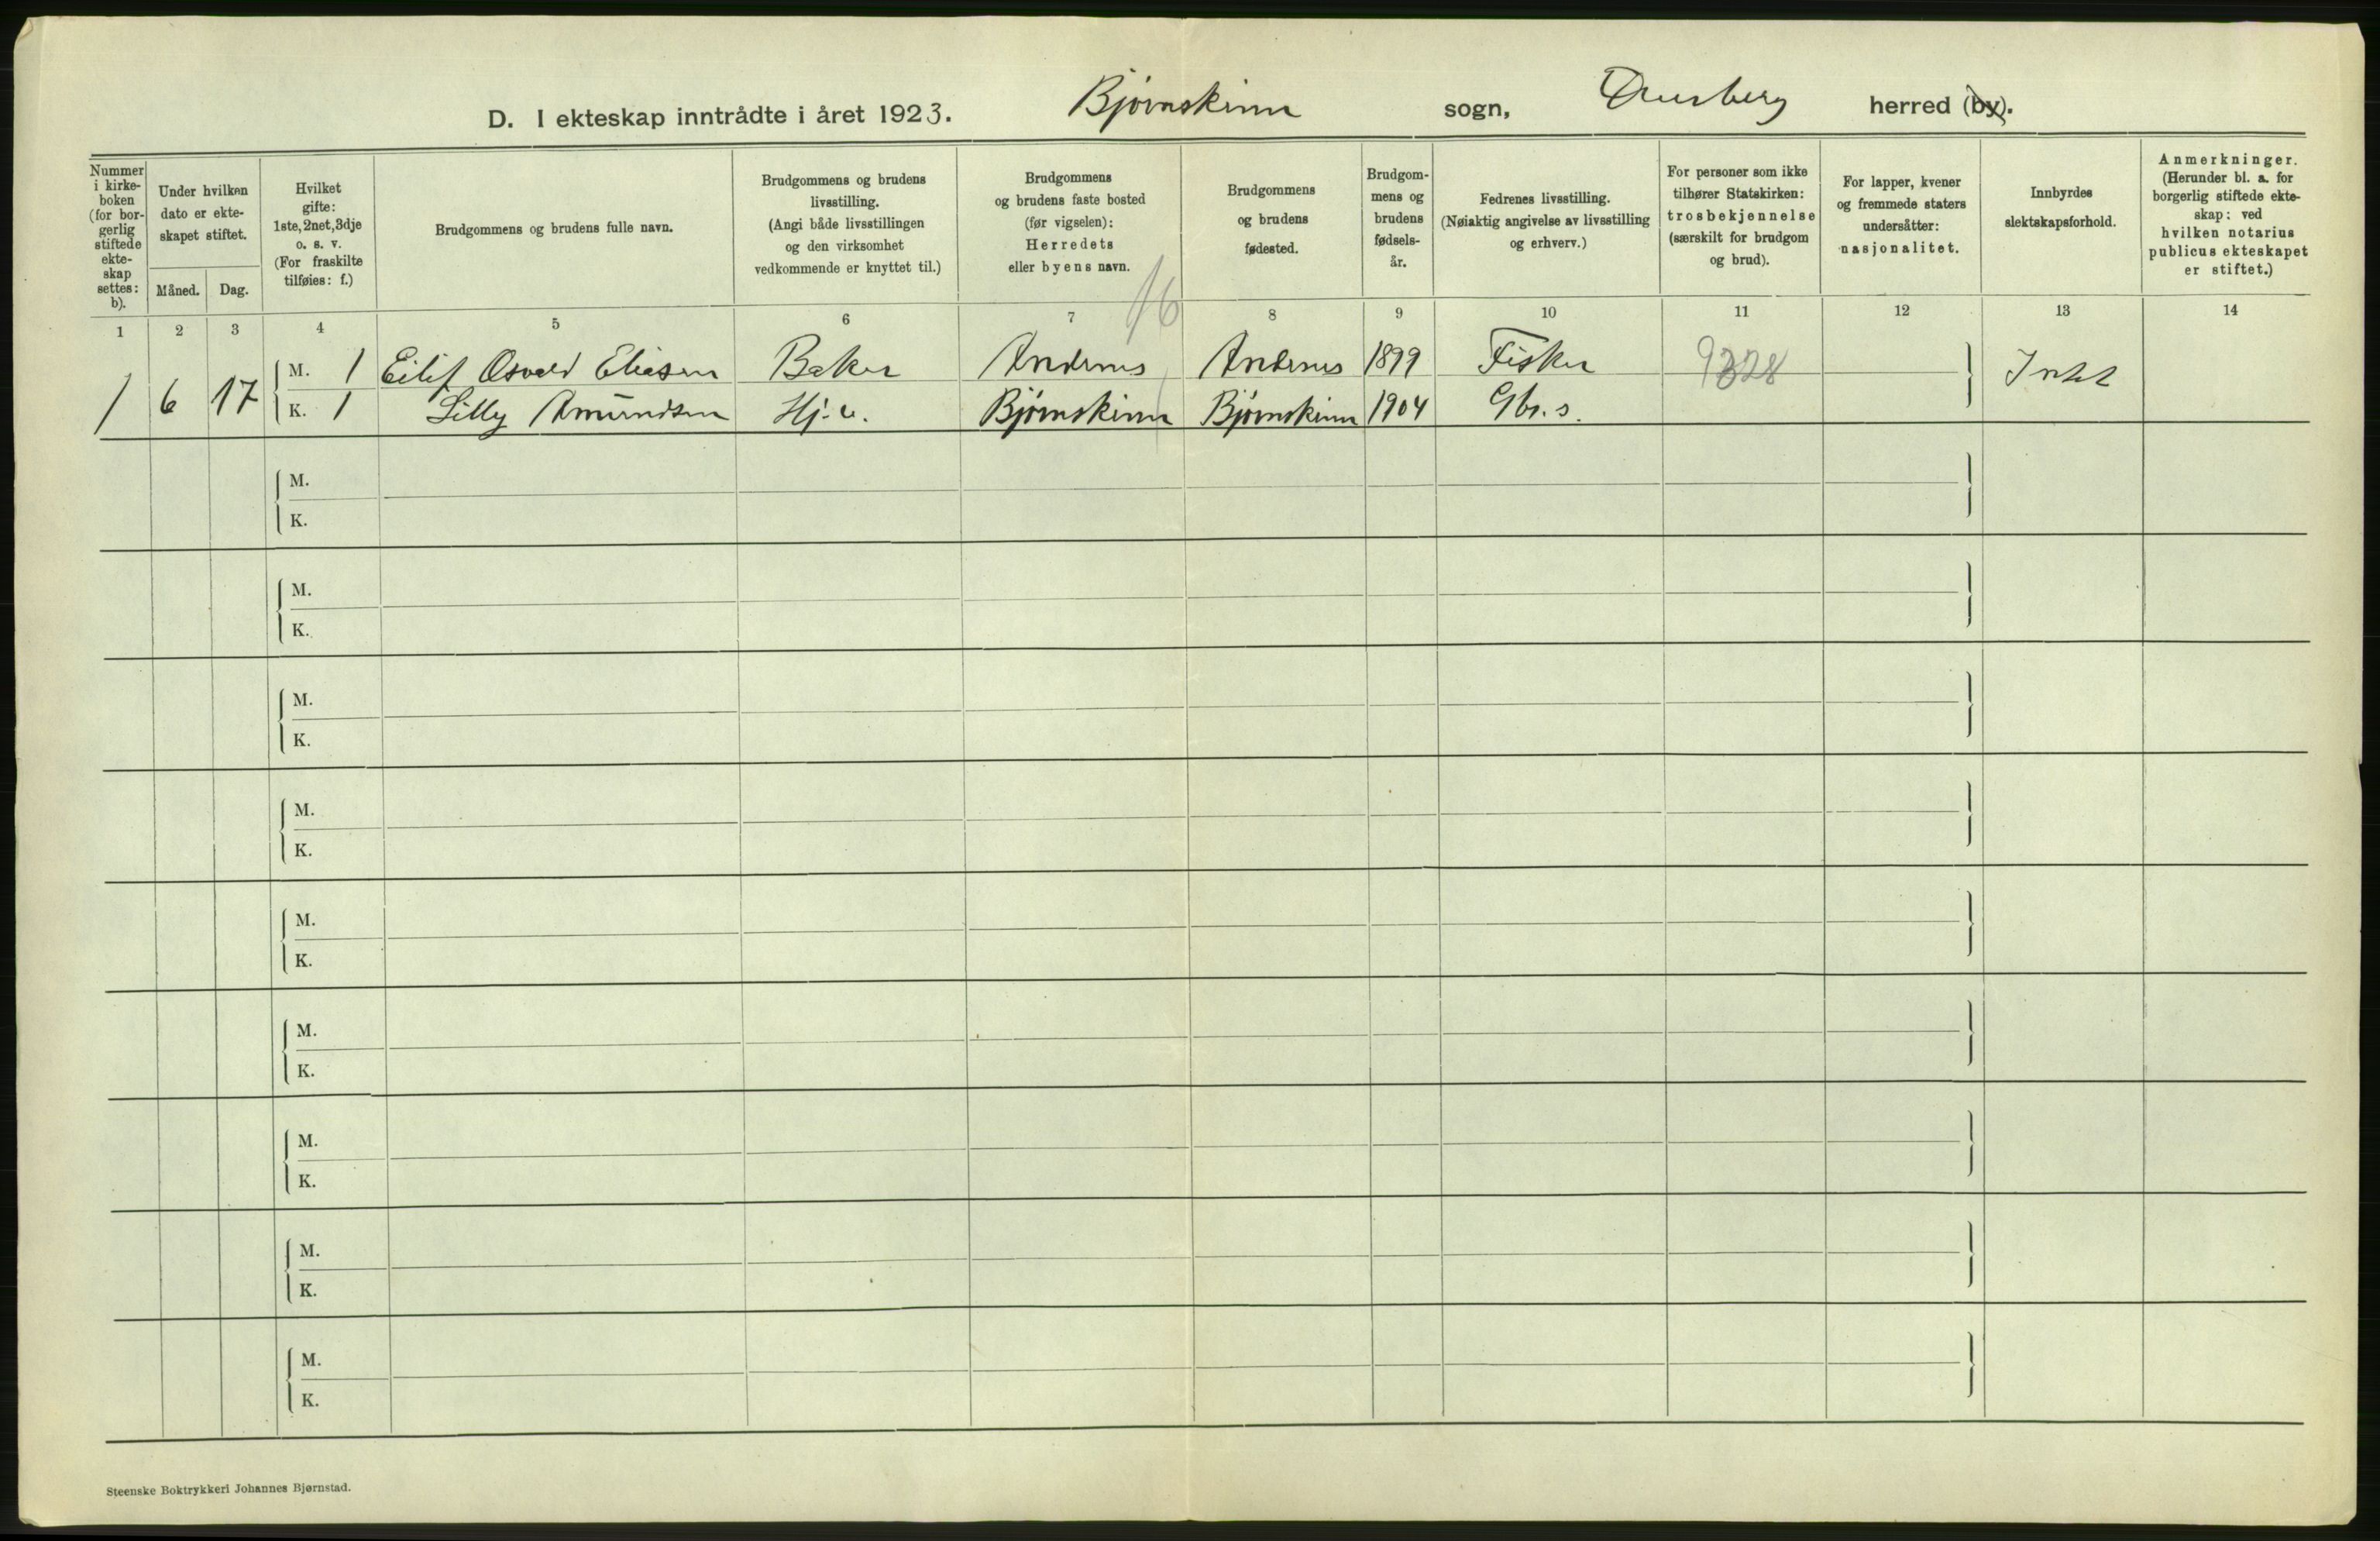 D. I ekteskap inntrådte i året 1923. Bjørnskinn sogn, Dverberg herred (by).
Nummer i kirke-boken (for bor-gerlig stiftede ekte-skap settes: b).
Under hvilken dato er ekte-skapet stiftet.
Måned. Dag.
Hvilket gifte: 1ste, 2net, 3dje o. s. v. (For fraskilte tilføies: f.)
Brudgommens og brudens fulle navn.
Brudgommens og brudens livsstilling. (Angi både livsstillingen og den virksomhet vedkommende er knyttet til.)
Brudgommens og brudens faste bosted (før vigselen): Herredets eller byens navn.
Brudgommens og brudens fødested.
Brudgom-mens og brudens fødsels-år.
Fedrenes livsstilling. (Nøiaktig angivelse av livsstilling og erhverv.)
For personer som ikke tilhører Statskirken: trosbekjennelse (særskilt for brudgom og brud).
For lapper, kvener og fremmede staters undersåtter: nasjonalitet.
Innbyrdes slektskapsforhold.
Anmerkninger. (Herunder bl. a. for borgerlig stiftede ekte-skap: ved hvilken notarius publicus ekteskapet er stiftet.)
16
1 2 3 4 5 6 7 8 9 10 11 12 13 14
1 6 17
M. 1 Eilif Osvald Eliasen Baker Andenes Andenes 1899 Fisker 9328 Intet
K. 1 Lilly Amundsen Hj. u. Bjørnskinn Bjørnskinn 1904 Gbr. s.
M.
K.
M.
K.
M.
K.
M.
K.
M.
K.
M.
K.
M.
K.
M.
K.
M.
K.
Steenske Boktrykkeri Johannes Bjørnstad.